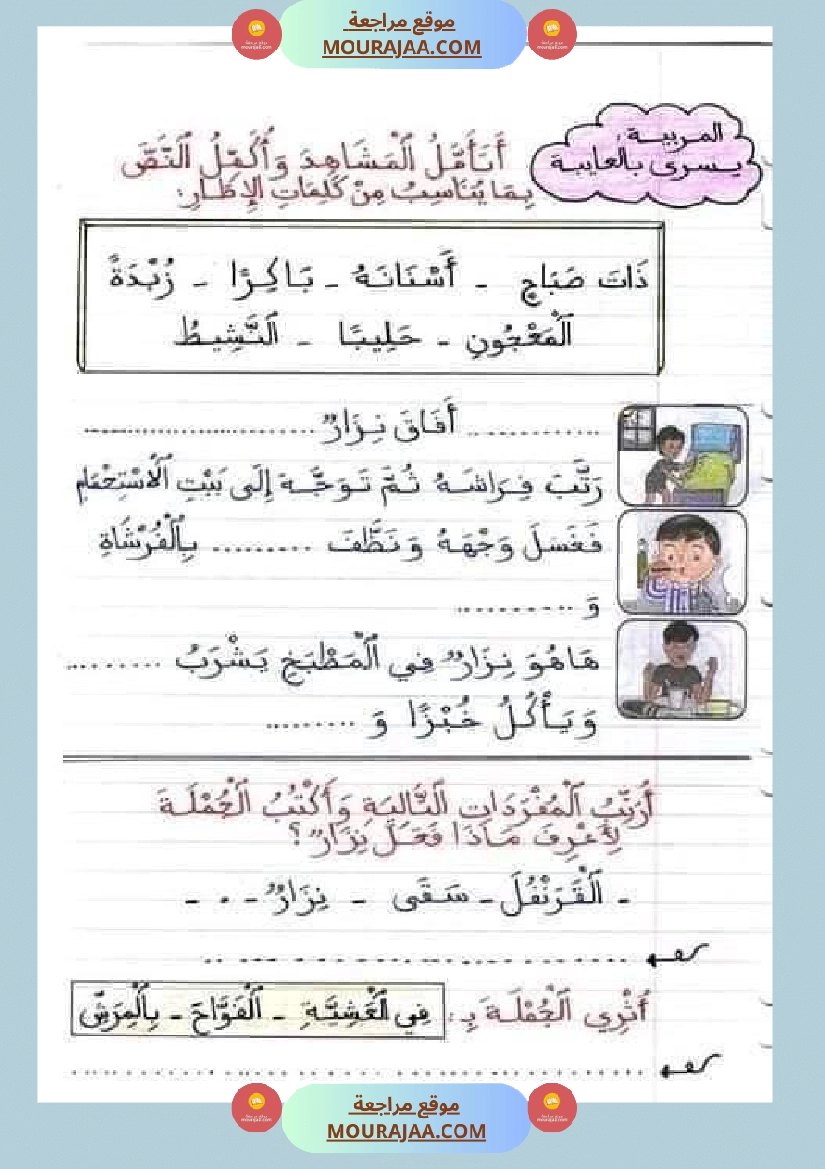 موقع مراجعة
MOURAJAA.COM
المربية :
يسرى بالعايبة
أَتَأَمَّلُ ٱلْمَشَاهِدَ وَأُكْمِلُ ٱلنَّصَّ
بِمَا يُنَاسِبُ مِنْ كَلِمَاتِ الإِطَارِ:
ذَاتَ صَبَاحٍ - أَسْنَانَهُ - بَاكِرًا - زُبْدَةً
ٱلْمَعْجُونِ - حَلِيبًا - ٱلنَّشِيطُ
............ أَفَاقَ نِزَارٌ ..............................
رَتَّبَ فِرَاشَهُ ثُمَّ تَوَجَّهَ إِلَى بَيْتِ ٱلْاسْتِحْمَامِ
فَغَسَلَ وَجْهَهُ وَنَظَّفَ .......... بِٱلْفُرْشَاةِ
وَ ............
هَاهُوَ نِزَارٌ فِي ٱلْمَطْبَخِ يَشْرَبُ .........
وَيَأْكُلُ خُبْزًا وَ .........
أُرَتِّبُ ٱلْمُفْرَدَاتِ ٱلتَّالِيَةِ وَأَكْتُبُ ٱلْجُمْلَةَ
لِأَعْرِفَ مَاذَا فَعَلَ نِزَارٌ؟
- ٱلْقَرَنْفُلَ - سَقَى - نِزَارٌ - . -
أُثْرِي ٱلْجُمْلَةَ بِ : فِي ٱلْعَشِيَّةِ - ٱلْفَوَّاحَ - بِٱلْمِرَشِّ
موقع مراجعة
MOURAJAA.COM